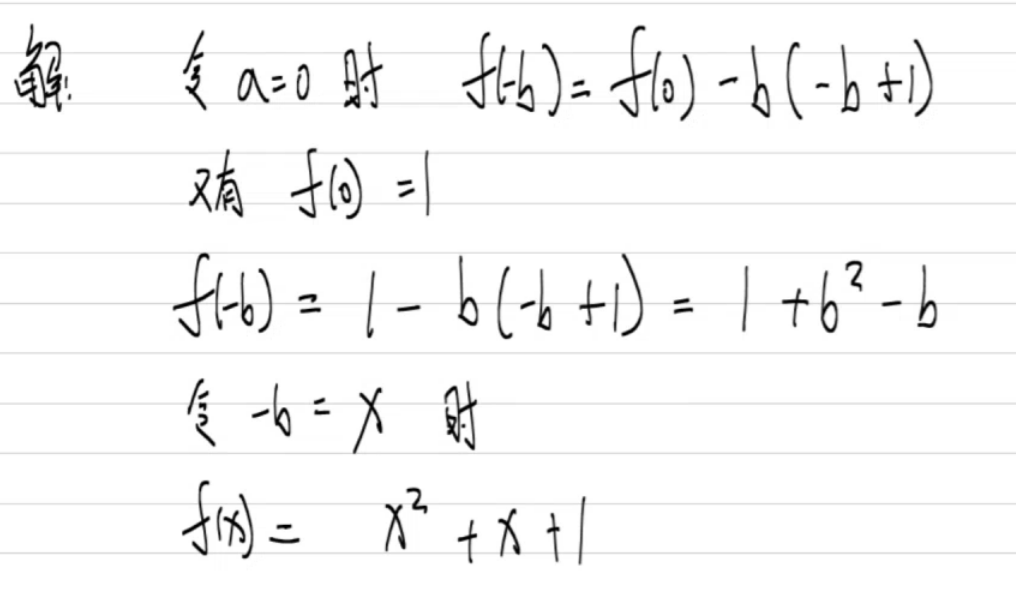 解: 令 a=0 时 f(-b)=f(0)-b(-b+1)
又有 f(0)=1
f(-b)=1-b(-b+1)=1+b²-b
令 -b=x 时
f(x)= x²+x+1